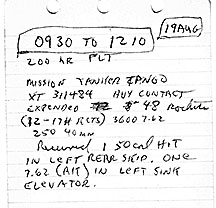 19AUG
0930 TO 1210
200 HR FLT
MISSION YANKEE TANGO
XT 311484 HVY CONTACT
EXPENDED 48 Rockets
(32-17# RKTS) 3600 7.62
250 40MM
Received 1 50cal HIT
IN LEFT REAR SKID, ONE
7.62 (AIT) IN LEFT SINK
ELEVATOR.